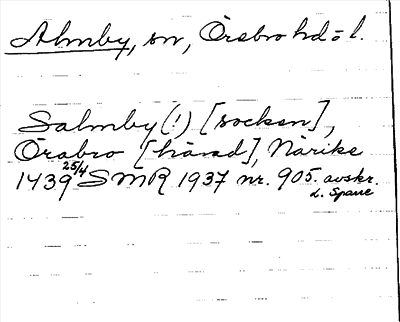 Almby, sn, Örebro hd o l.
Salmby(!) [socken],
Örabro [härad], Närike
1439 25/4 SMR 1937 nr. 905. avskr.
L. Spane